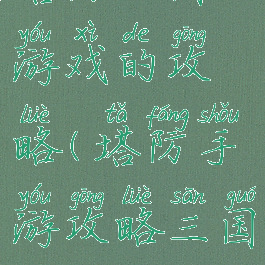 yóu xì de gōng
游戏的攻
lüè tǎ fáng shǒu
略(塔防手
yóu gōng lüè sān guó
游攻略三国